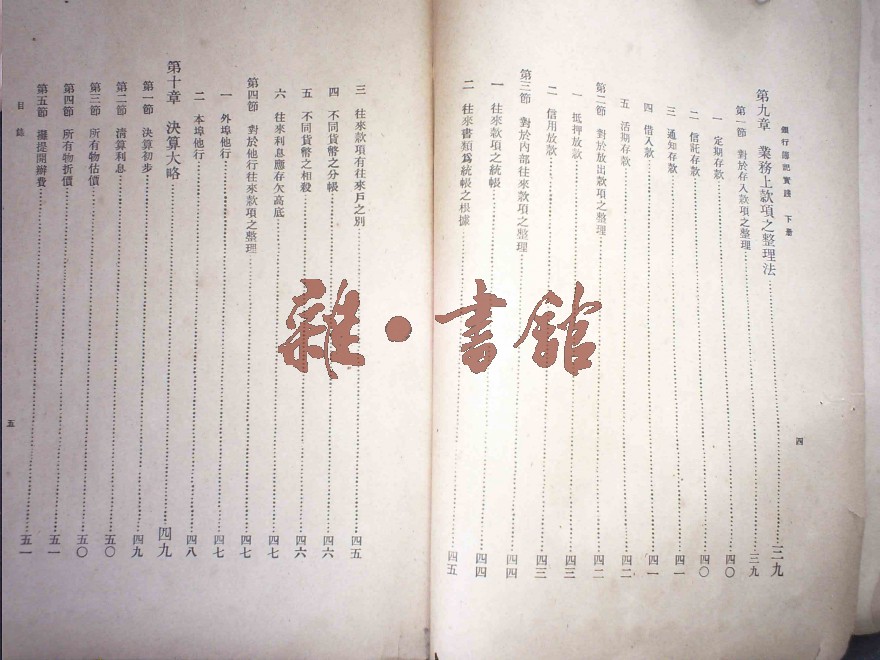 銀行簿記實踐 下册
四
第九章 業務上款項之整理法 三九
第一節 對於存入款項之整理 三九
一 定期存款 四〇
二 信託存款 四〇
三 通知存款 四一
四 借入款 四一
五 活期存款 四二
第二節 對於放出款項之整理 四二
一 抵押放款 四三
二 信用放款 四三
第三節 對於內部往來款項之整理 四四
一 往來款項之統帳 四四
二 往來書類爲統帳之根據 四五
三 往來款項有往來戶之別 四五
四 不同貨幣之分帳 四六
五 不同貨幣之相殺 四六
六 往來利息應存欠高底 四七
第四節 對於他行往來款項之整理 四七
一 外埠他行 四七
二 本埠他行 四八
第十章 決算大略 四九
第一節 決算初步 四九
第二節 清算利息 五〇
第三節 所有物估價 五〇
第四節 所有物折價 五一
第五節 攤提開辦費 五一
目錄
五
雜·書館